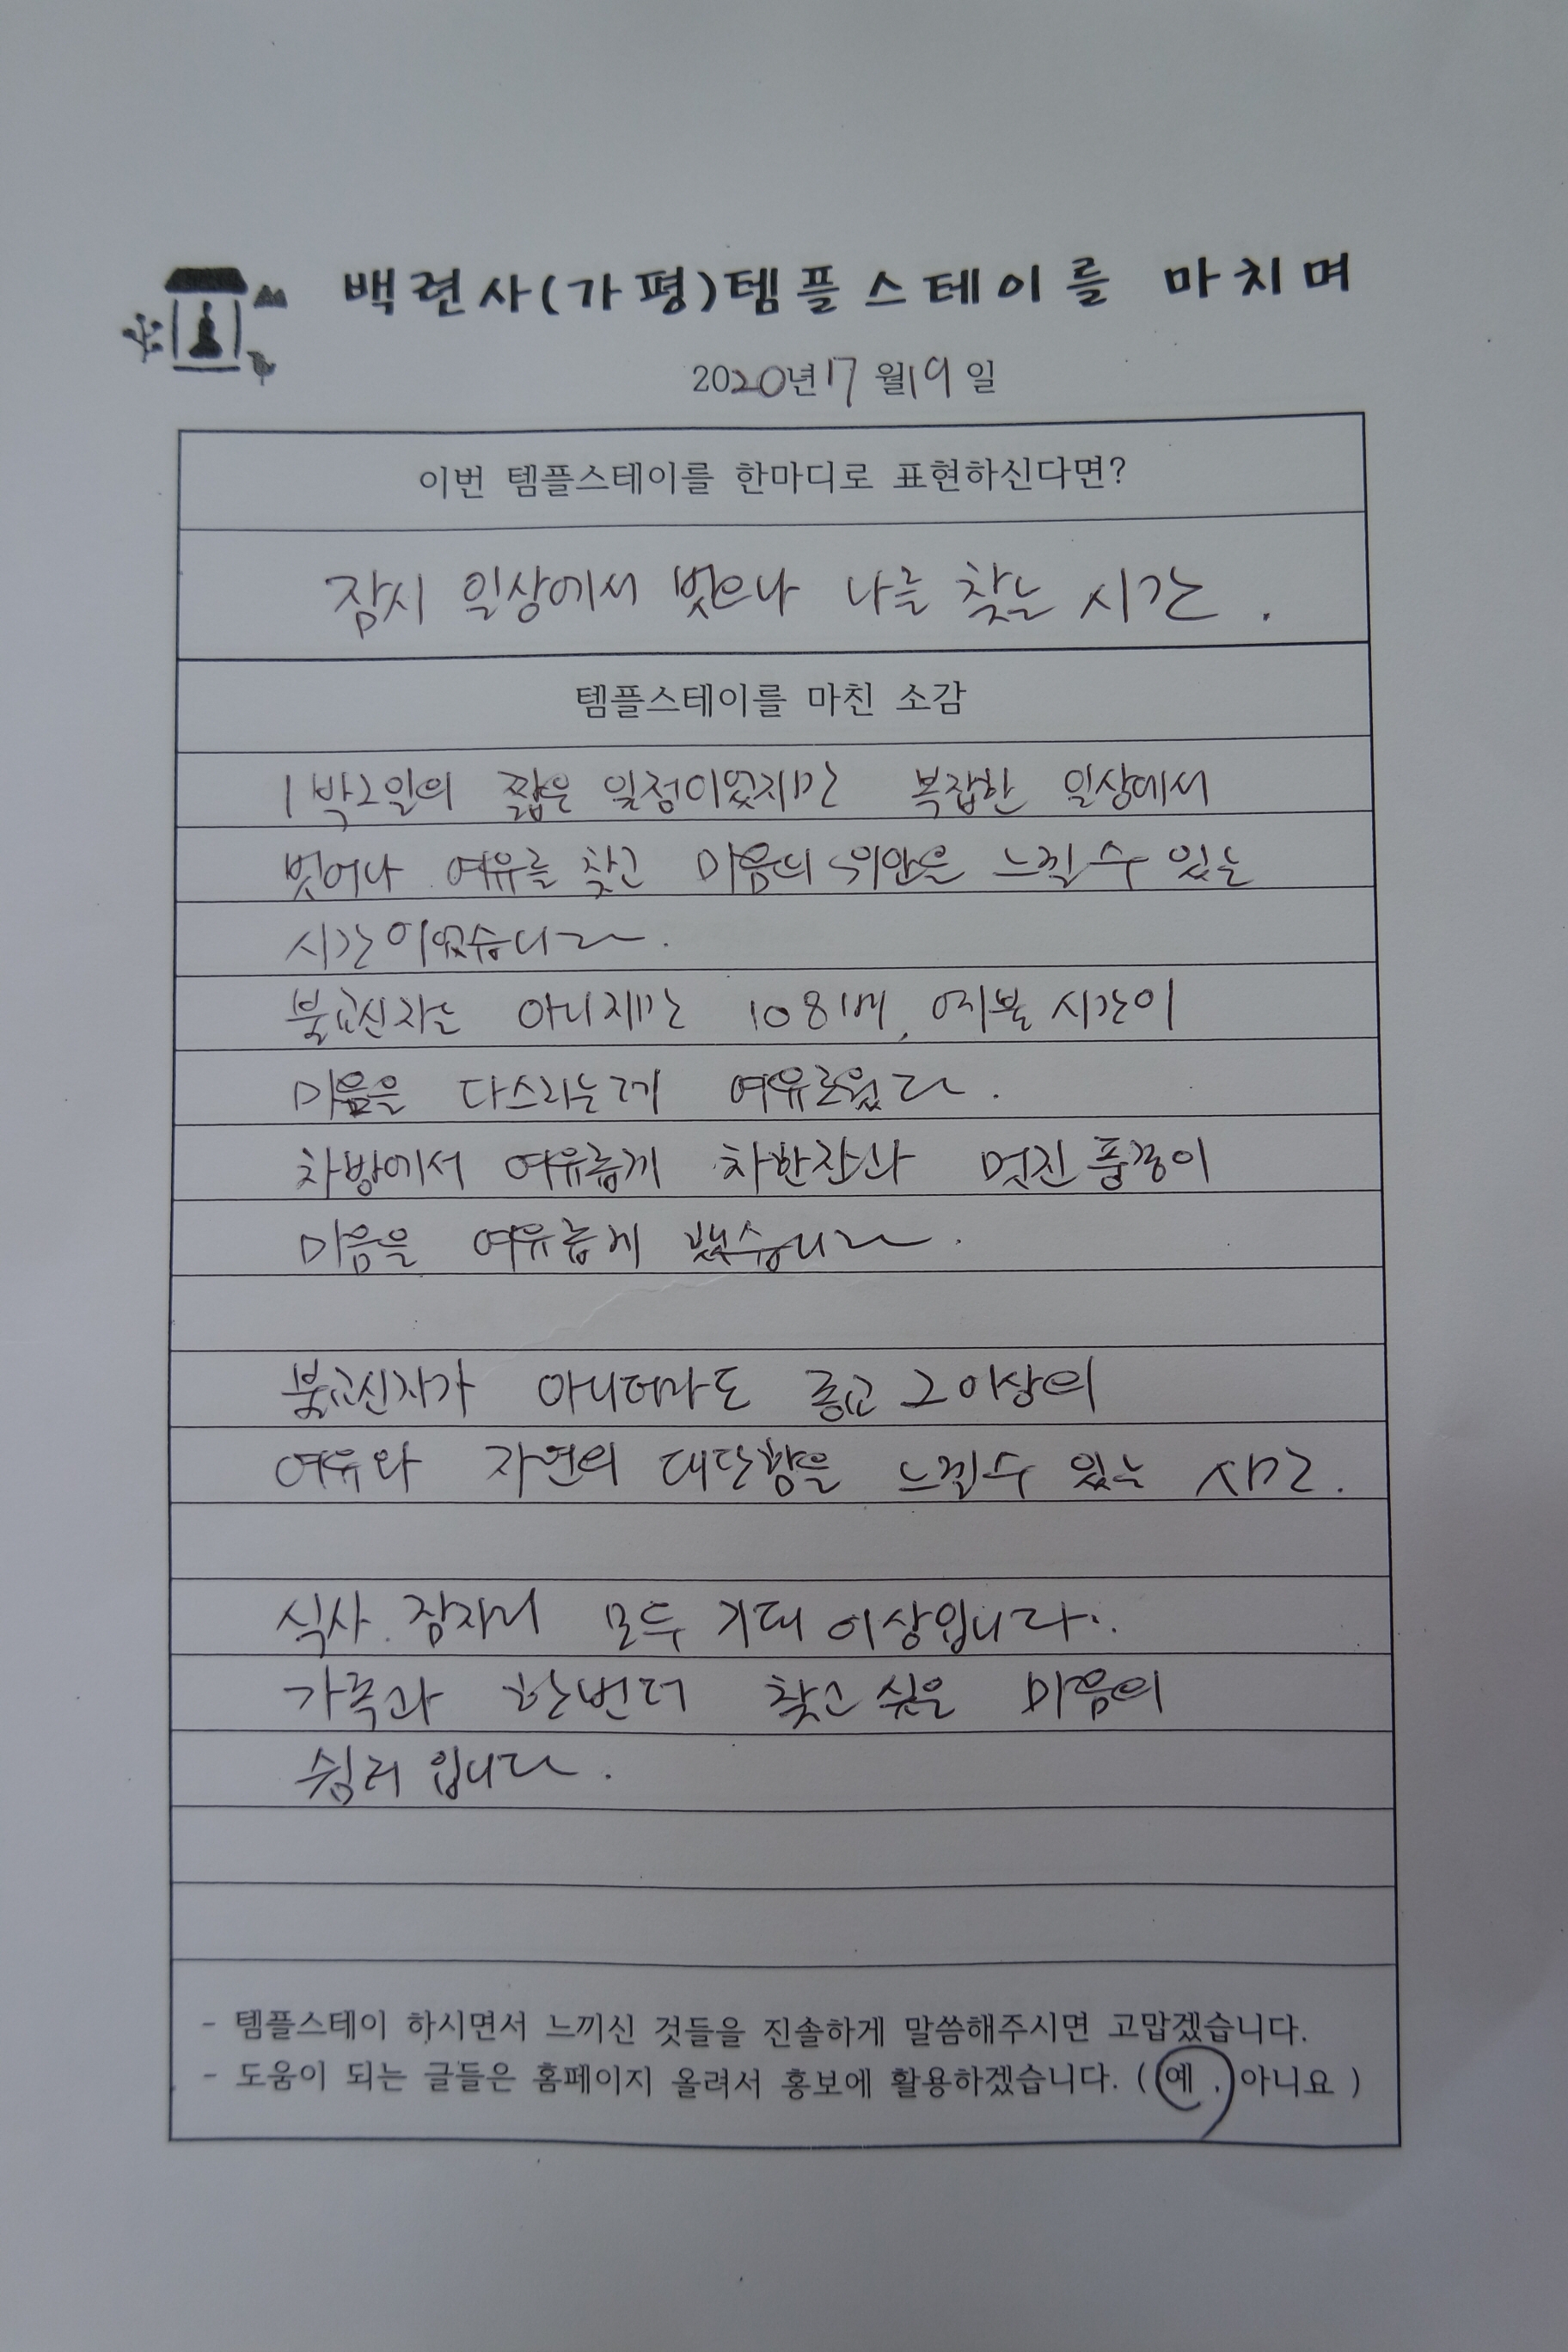 백련사(가평)템플스테이를 마치며
2020년 17월 19일
이번 템플스테이를 한마디로 표현하신다면?
잠시 일상에서 벗으나 나를 찾는 시간.
템플스테이를 마친 소감
1박2일의 짧은 일정이었지만 복잡한 일상에서
벗어나 여유를 찾고 마음의 위안을 느낄 수 있는
시간이었습니다.
불교신자는 아니지만 108배, 예불 시간이
마음을 다스리는데 여유로웠다.
차방에서 여유롭게 차한잔과 멋진 풍경이
마음을 여유롭게 했습니다.
불교신자가 아니더라도 종교 그이상의
여유와 자연의 대단함을 느낄수 있는 시간.
식사. 잠자리 모두 기대 이상입니다.
가족과 한번더 찾고 싶은 마음의
쉼터 입니다.
- 템플스테이 하시면서 느끼신 것들을 진솔하게 말씀해주시면 고맙겠습니다.
- 도움이 되는 글들은 홈페이지 올려서 홍보에 활용하겠습니다. ( 예 , 아니요 )